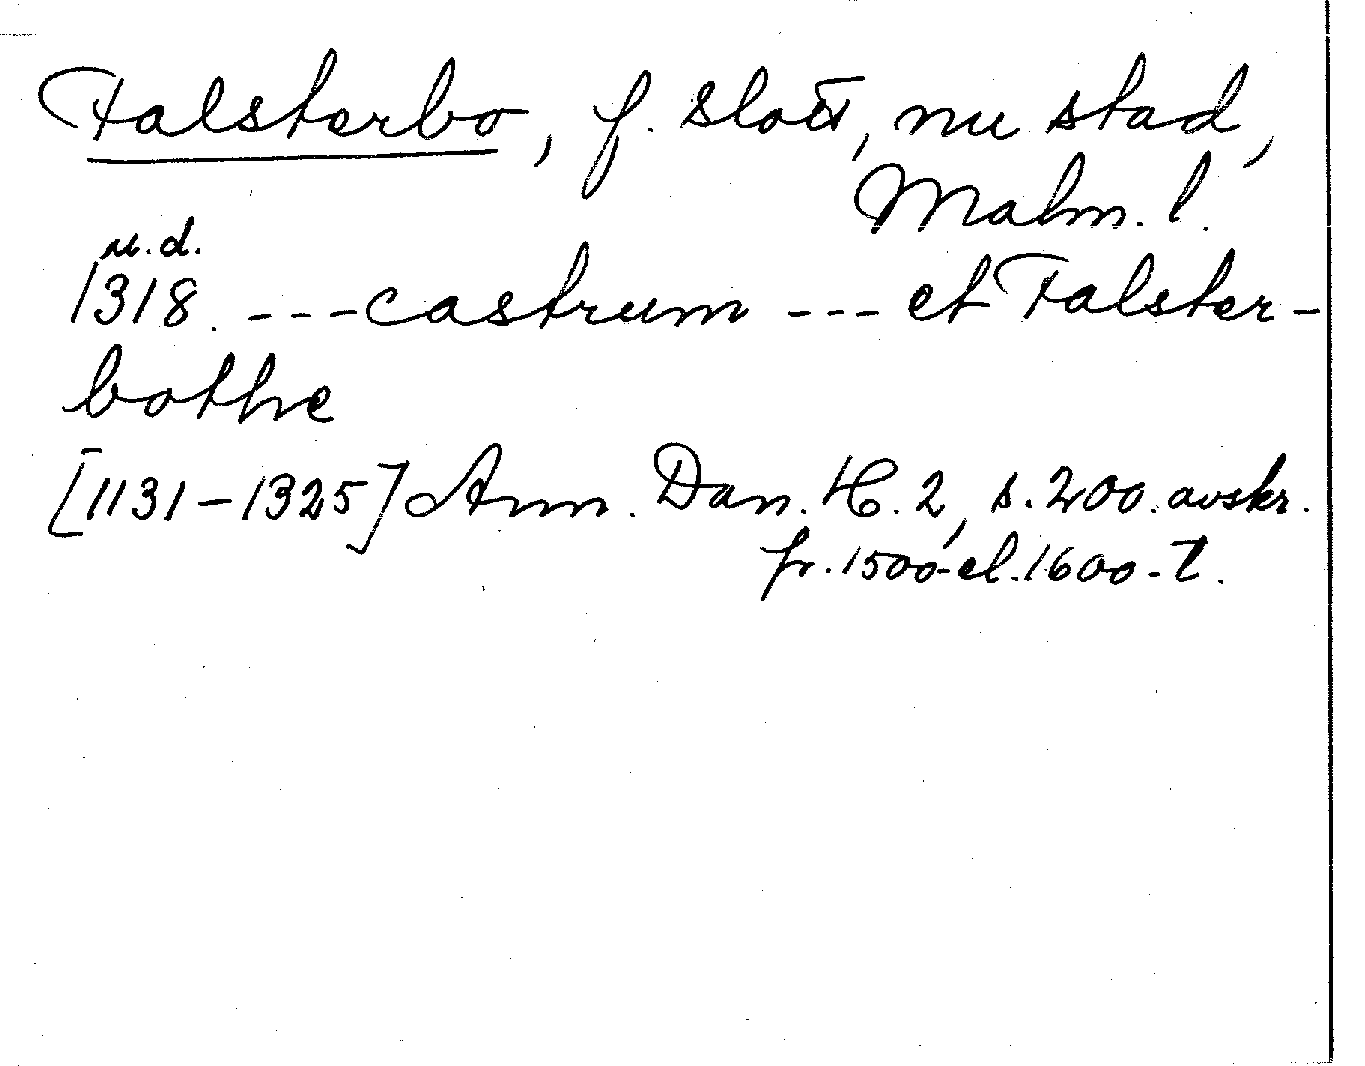 Falsterbo, f. slott, nu stad,
Malm. l.
u.d.
1318. ---castrum --- et Falster-
bothe
[1131-1325] Ann. Dan. H. 2, s. 200. avskr.
fr. 1500- el. 1600-t.